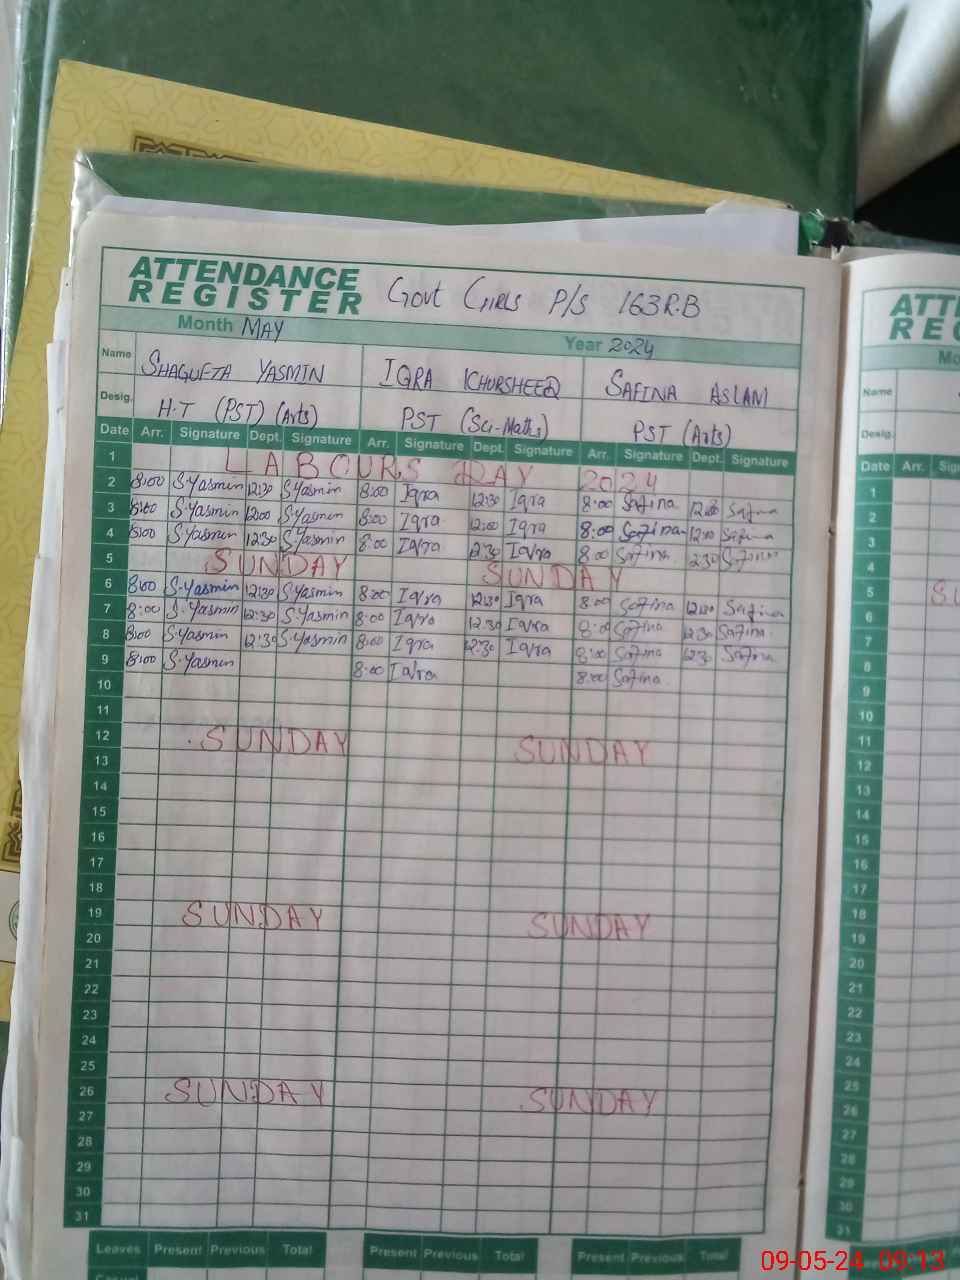 ATTENDANCE REGISTER Govt Girls P/S 163R.B
Month MAY Year 2024
Name SHAGUFTA YASMIN IQRA KHURSHEED SAFINA ASLAM
Desig. H.T (PST) (Arts) PST (Sci-Maths) PST (Arts)
Date Arr. Signature Dept. Signature Arr. Signature Dept. Signature Arr. Signature Dept. Signature
1 LABOURS DAY 2024
2 8:00 S.Yasmin 12:30 S.Yasmin 8:00 Iqra 12:30 Iqra 8:00 Safina Safina
3 8:00 S.Yasmin 12:00 S.Yasmin 8:00 Iqra 12:00 Iqra 8:00 Safina 12:00 Safina
4 8:00 S.Yasmin 12:30 S.Yasmin 8:00 Iqra 12:30 Iqra 8:00 Safina 12:30 Safina
5 SUNDAY SUNDAY
6 8:00 S.Yasmin 12:30 S.Yasmin 8:00 Iqra 12:30 Iqra 8:00 Safina 12:30 Safina
7 8:00 S.Yasmin 12:30 S.Yasmin 8:00 Iqra 12:30 Iqra 8:00 Safina 12:30 Safina
8 8:00 S.Yasmin 12:30 S.Yasmin 8:00 Iqra 12:30 Iqra 8:00 Safina 12:30 Safina
9 8:00 S.Yasmin 8:00 Iqra 8:00 Safina
10
11
12 SUNDAY SUNDAY
13
14
15
16
17
18
19 SUNDAY SUNDAY
20
21
22
23
24
25
26 SUNDAY SUNDAY
27
28
29
30
31
Leaves Present Previous Total Present Previous Total Present Previous Total
ATT
REG
Mo
Name
Desig.
Date Arr. Sig
1
2
3
4
5 SU
6
7
8
9
10
11
12
13
14
15
16
17
18
19
20
21
22
23
24
25
26
27
28
29
30
31
09-05-24 09:13